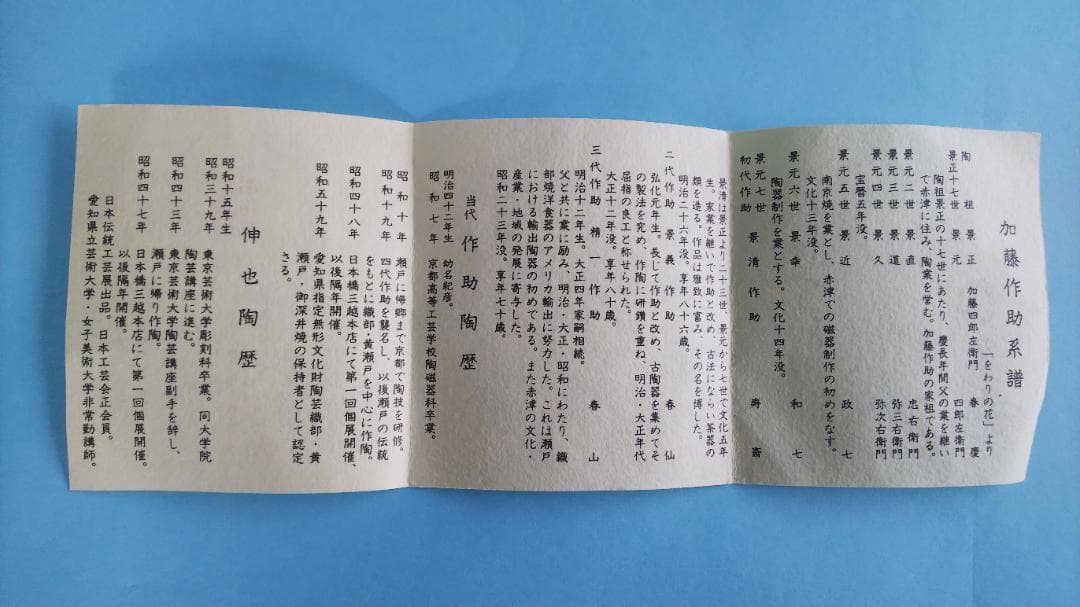 加藤作助系譜
「をわりの花」より
陶祖 景正 加藤四郎左衛門 春慶
景正十七世 景元 四郎左衛門
陶祖景正の十七世にあたり、慶長年間父の業を継い
で赤津に住み、陶業を営む。加藤作助の家祖である。
景元二世 景直 忠右衛門
景元三世 景道 弥三右衛門
景元四世 景久 弥次右衛門
宝暦五年没。
景元五世 景近 政七
南京焼を業とし、赤津での磁器制作の初めをなす。
文化十三年没。
景元六世 景幸 和七
陶器制作を業とする。文化十四年没。
景元七世
初代作助 景清作助 寿斎
景清は景正より二十三世、景元から七世で文化五年
生。家業を継いで作助と改め、古法にならい茶器の
類を造る。作品は雅致に富み、その名を博した。
明治二十六年没。享年八十六歳。
二代作助 景義作助 春仙
弘化元年生。長して作助と改め、古陶器を集めてそ
の製法を究め、作陶に研鑽を重ね、明治・大正年代
屈指の良工と称せられた。
大正十二年没。享年八十歳。
三代作助 精一作助 春山
明治十二年生。大正四年家嗣相続。
父と共に業に励み、明治・大正・昭和にわたり、織
部焼洋食器のアメリカ輸出に努力した。これは瀬戸
における輸出陶器の初めである。また赤津の文化・
産業・地域の発展に寄与した。
昭和二十三年没。享年七十歳。
当代 作助陶歴
明治四十二年生 幼名紀彦。
昭和七年 京都高等工芸学校陶磁器科卒業。
昭和十年 瀬戸に帰郷まで京都で陶技を研修。
昭和十九年 四代作助を襲名し、以後瀬戸の伝統
をもとに織部・黄瀬戸を中心に作陶。
昭和四十八年 日本橋三越本店にて第一回個展開催、
以後隔年開催。
昭和五十九年 愛知県指定無形文化財陶芸織部・黄
瀬戸・御深井焼の保持者として認定
さる。
伸也陶歴
昭和十五年生
昭和三十九年 東京芸術大学彫刻科卒業。同大学院
陶芸講座に進む。
昭和四十三年 東京芸術大学陶芸講座副手を辞し、
瀬戸に帰り作陶。
昭和四十七年 日本橋三越本店にて第一回個展開催。
以後隔年開催。
日本伝統工芸展出品。日本工芸会正会員。
愛知県立芸術大学・女子美術大学非常勤講師。